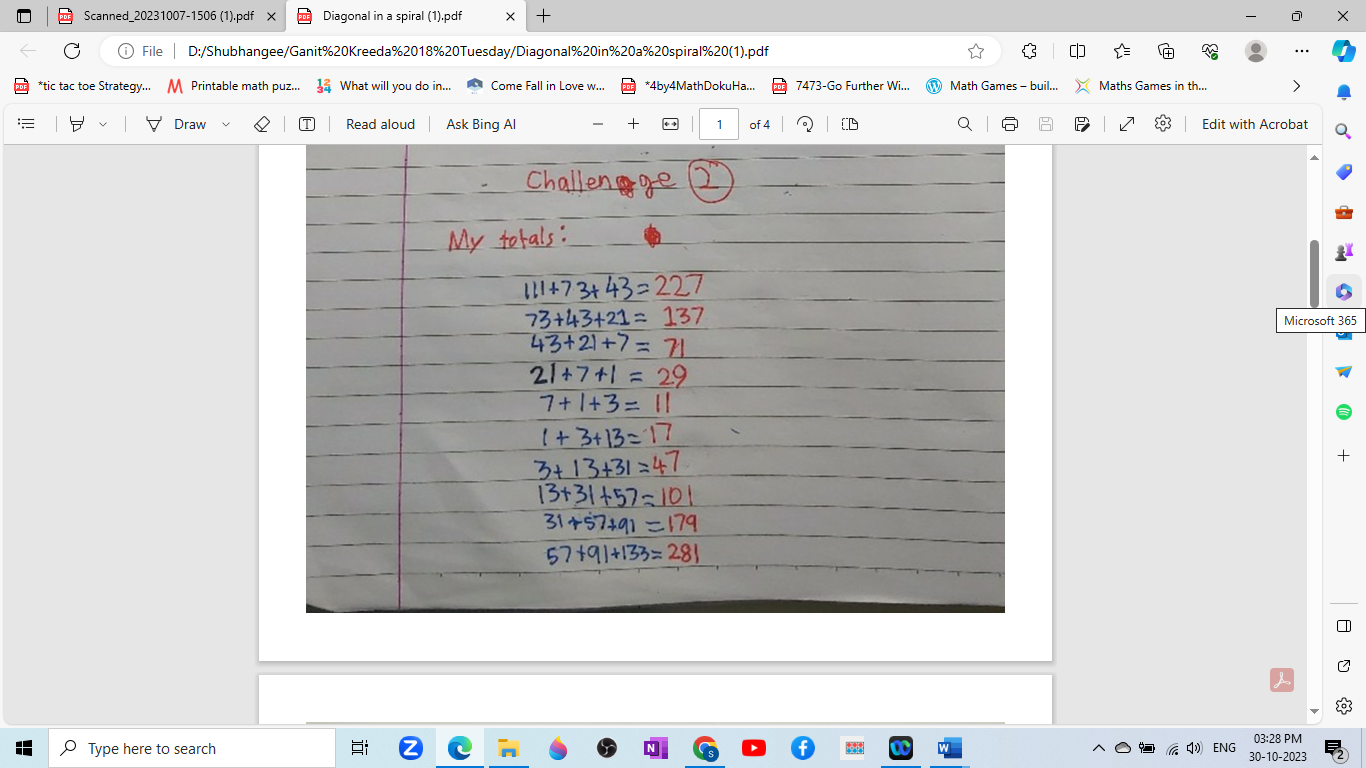 Scanned_20231007-1506 (1).pdf
Diagonal in a spiral (1).pdf
File
D:/Shubhangee/Ganit%20Kreeda%2018%20Tuesday/Diagonal%20in%20a%20spiral%20(1).pdf
*tic tac toe Strategy...
Printable math puz...
What will you do in...
Come Fall in Love w...
*4by4MathDokuHa...
7473-Go Further Wi...
Math Games – buil...
Maths Games in th...
Draw
Read aloud
Ask Bing AI
1
of 4
Edit with Acrobat
Challenge 2
My totals:
111+73+43=227
73+43+21= 137
43+21+7= 71
21+7+1 = 29
7+1+3= 11
1+3+13=17
3+13+31=47
13+31+57=101
31+57+91 =179
57+91+133=281
Microsoft 365
Type here to search
ENG
03:28 PM
30-10-2023
2